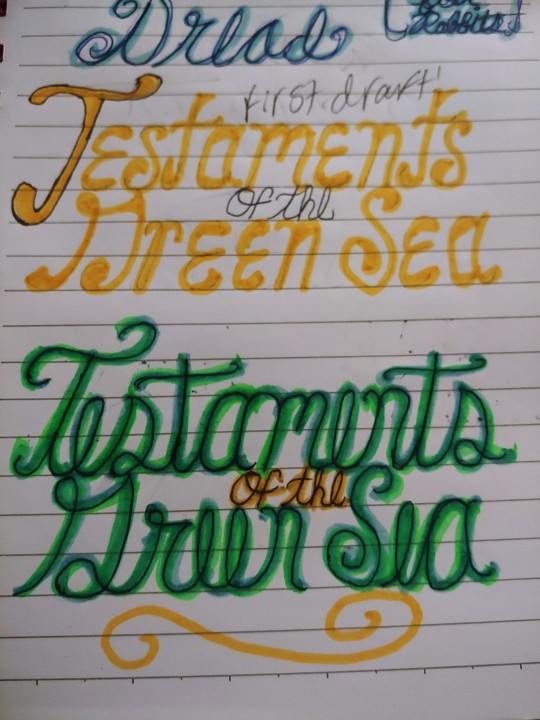 Dread
Rabbits
first draft!
Testaments
Of the
Green Sea
Testaments
Of the
Green Sea